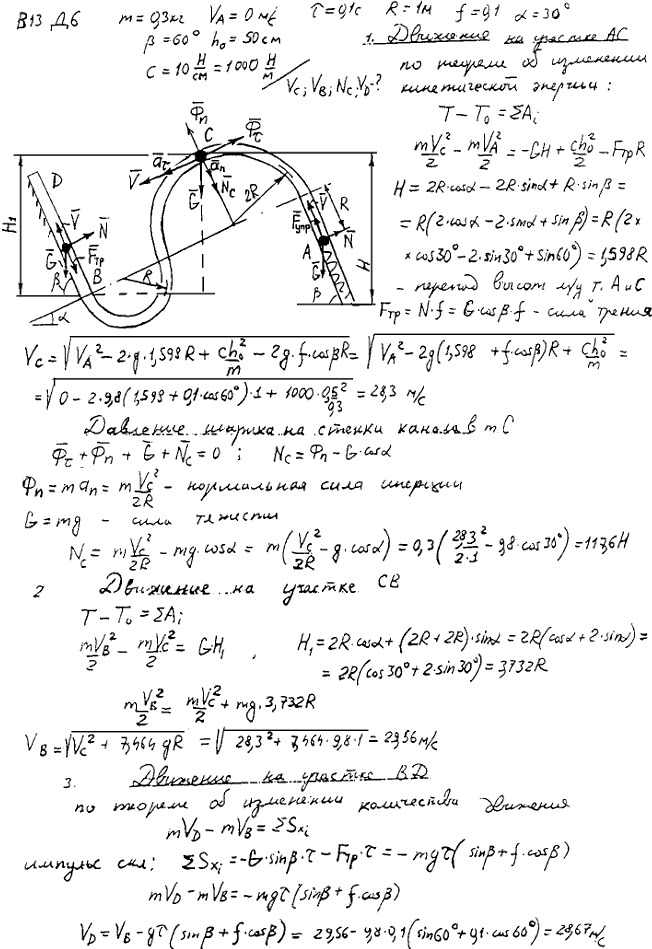 В13 Д6 m = 0,3 кг V_A = 0 м/с τ = 0,1 с R = 1 м f = 0,1 α = 30°
β = 60° h₀ = 50 см
C = 10 Н/см = 1000 Н/м
V_C; V_B; N_C; V_D - ?
1. Движение на участке AC
по теореме об изменении
кинетической энергии:
T - T₀ = ΣA_i
mV_C²/2 - mV_A²/2 = -GH + ch₀²/2 - F_тр R
H = 2R·cosα - 2R·sinα + R·sinβ =
= R(2·cosα - 2·sinα + sinβ) = R(2×
× cos30° - 2·sin30° + sin60°) = 1,598R
- перепад высот м/у т. A и C
F_тр = N·f = G·cosβ·f - сила трения
Φ̄_n C Φ̄_τ
D V̄ ā_τ ā_n N̄_C Ḡ 2R
H₁ V̄ N̄ Ḡ F̄_тр β B R α
F̄_упр V̄ R N̄ A Ḡ β H
V_C = √(V_A² - 2·g·1,598R + ch₀²/m - 2g·f·cosβR) = √(V_A² - 2g(1,598 + f·cosβ)R + ch₀²/m) =
= √(0 - 2·9,8(1,598 + 0,1·cos60°)·1 + 1000·0,5²/0,3) = 28,3 м/с
Давление шарика на стенки канала в т C
Φ̄_τ + Φ̄_n + Ḡ + N̄_C = 0 ; N_C = Φ_n - G·cosα
Φ_n = m a_n = m V_C²/2R - нормальная сила инерции
G = mg - сила тяжести
N_C = m V_C²/2R - mg·cosα = m(V_C²/2R - g·cosα) = 0,3(28,3²/2·1 - 9,8·cos30°) = 117,6 Н
2 Движение на участке CB
T - T₀ = ΣA_i
mV_B²/2 - mV_C²/2 = GH₁ , H₁ = 2R·cosα + (2R + 2R)·sinα = 2R(cosα + 2·sinα) =
= 2R(cos30° + 2·sin30°) = 3,732R
m V_B²/2 = mV_C²/2 + mg·3,732R
V_B = √(V_C² + 7,464 gR) = √(28,3² + 7,464·9,8·1) = 29,56 м/с
3. Движение на участке BD
по теореме об изменении количества движения
mV_D - mV_B = ΣS_xi
импульс сил: ΣS_xi = -G·sinβ·τ - F_тр·τ = -mgτ(sinβ + f·cosβ)
mV_D - mV_B = -mgτ(sinβ + f·cosβ)
V_D = V_B - gτ(sinβ + f·cosβ) = 29,56 - 9,8·0,1(sin60° + 0,1·cos60°) = 28,67 м/с